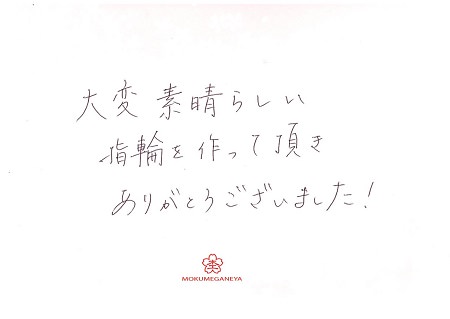 大変素晴らしい
指輪を作って頂き
ありがとうございました!
MOKUMEGANEYA